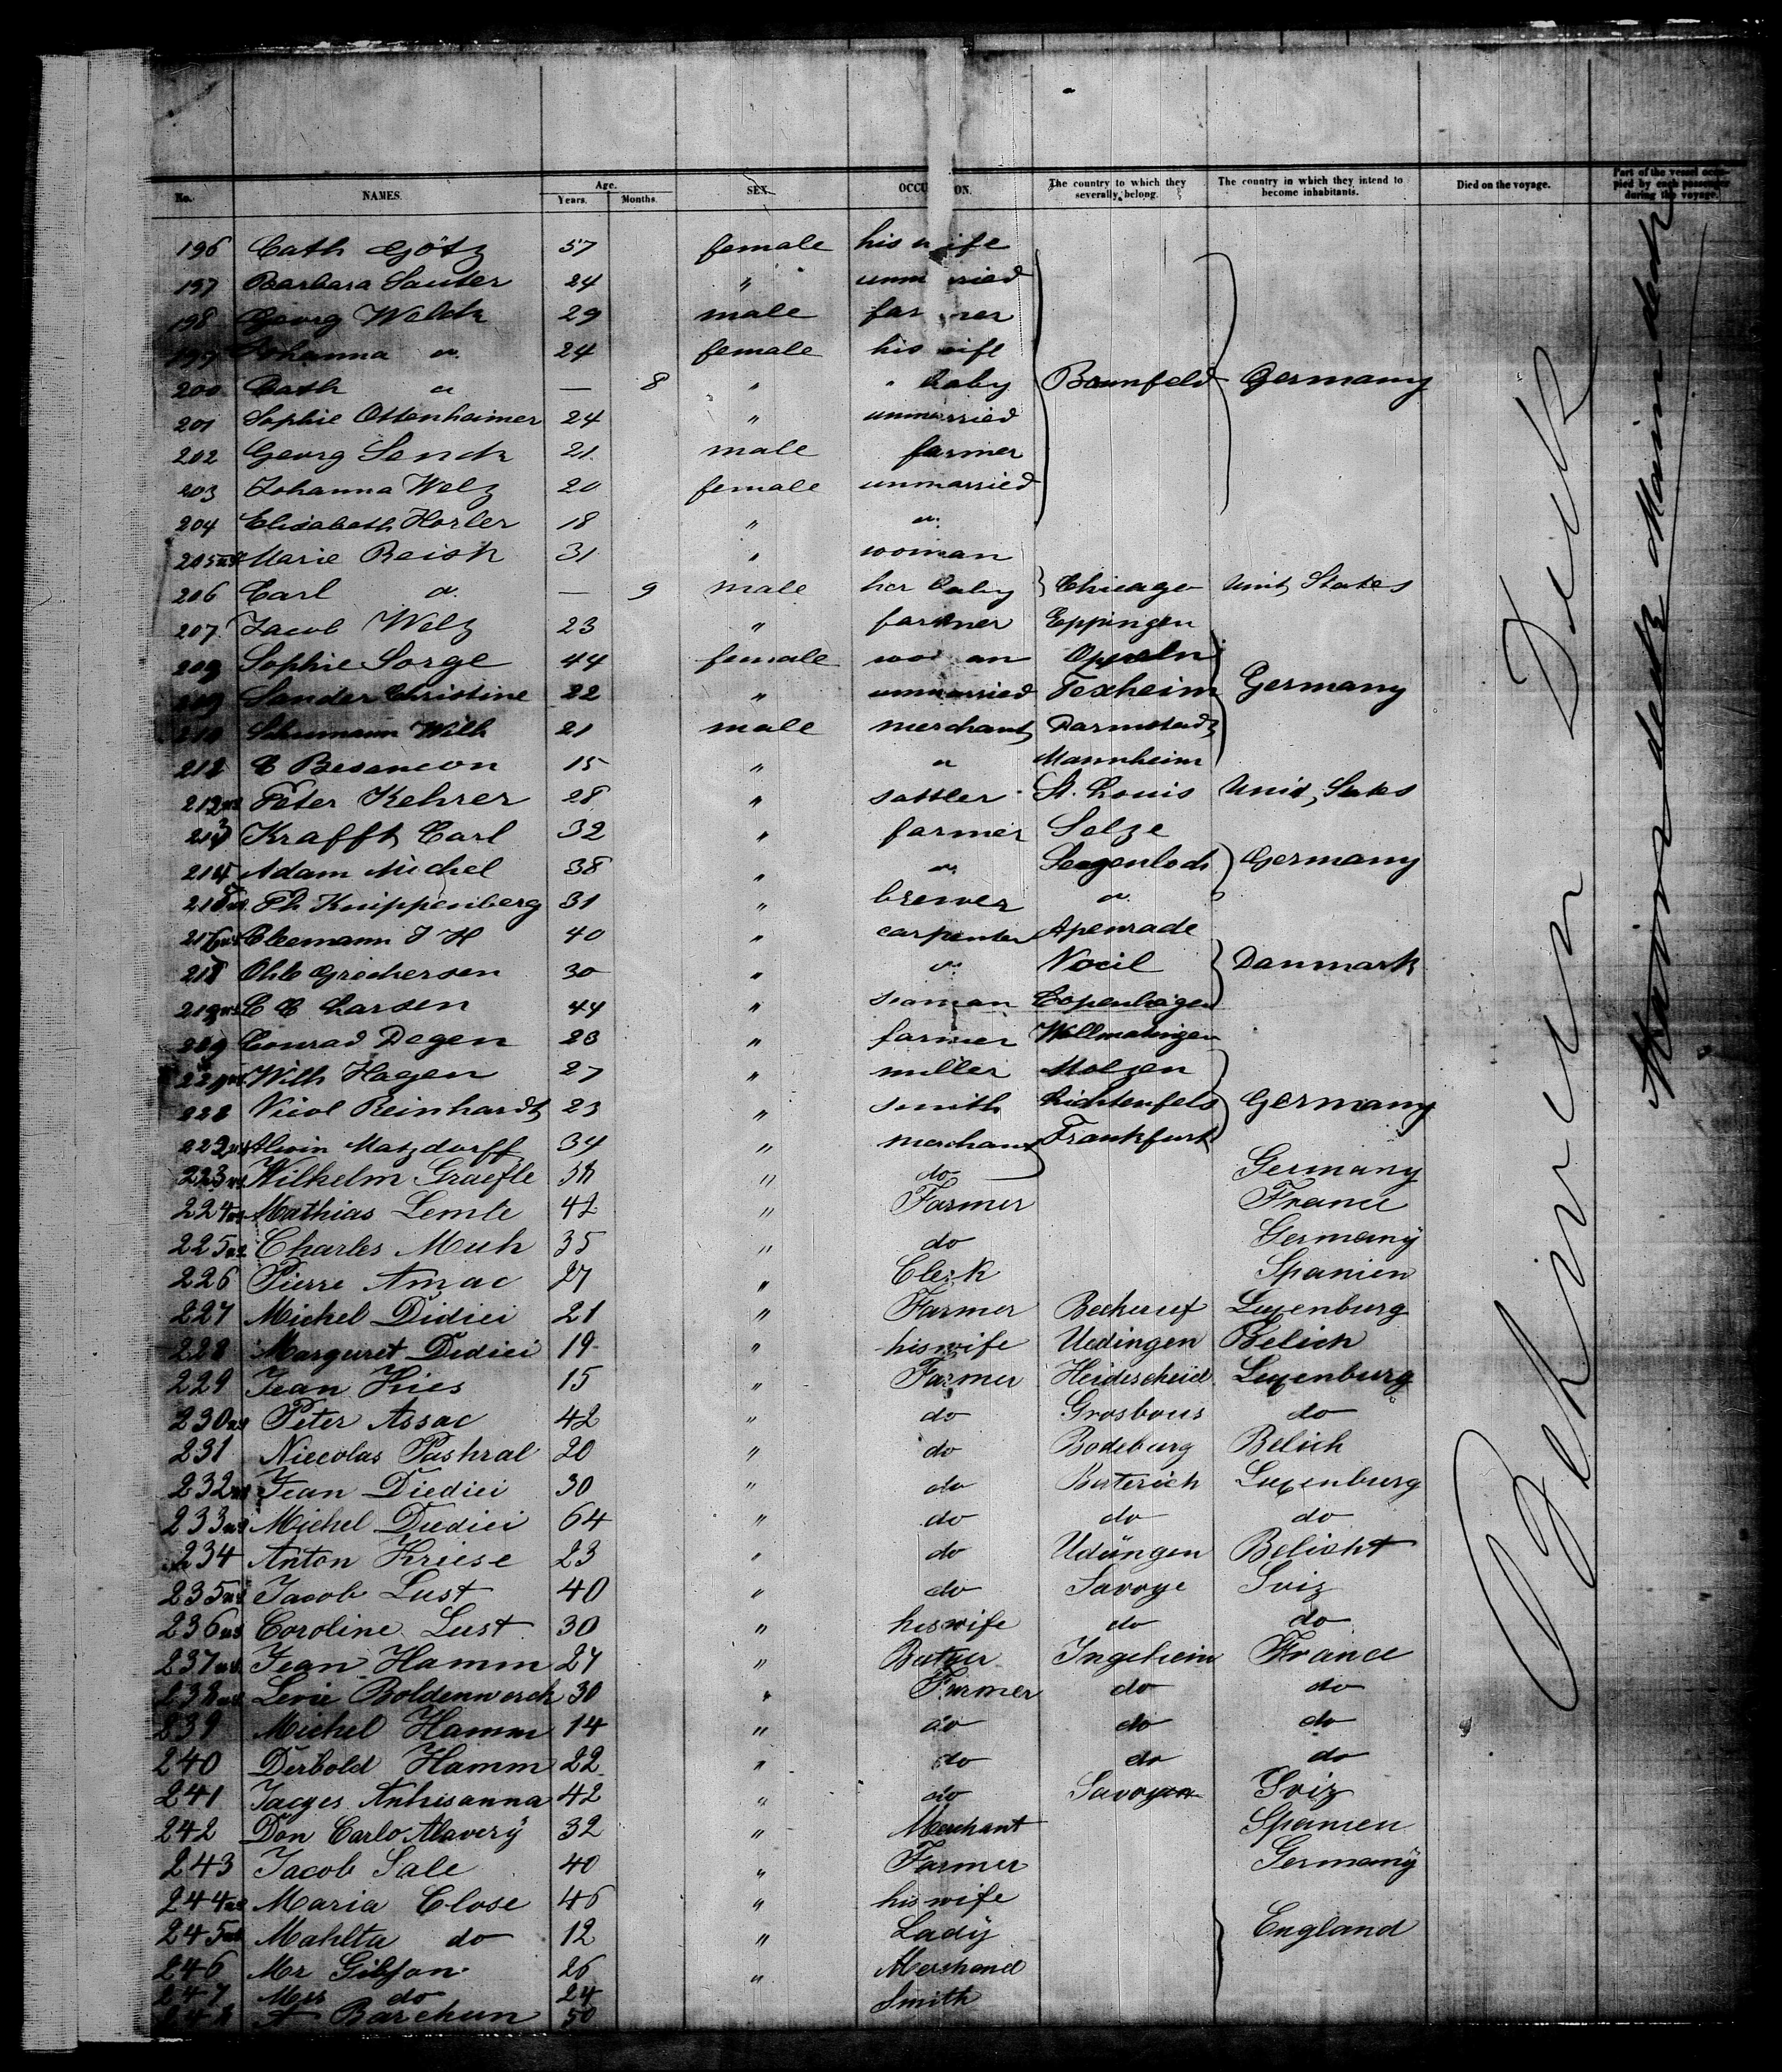 No. NAMES. Age. Years. Months. SEX. OCCU ON. The country to which they severally belong. The country in which they intend to become inhabitants. Died on the voyage. Part of the vessel occupied by each passenger during the voyage.
196 Cath Götz 57 female his wife
197 Barbara Sauter 24 " unm ried
198 Georg Welch 29 male far mer
199 Johanna " 24 female his wife
200 Cath " — 8 " " baby Germany
201 Sophie Ottenheimer 24 " unmarried
202 Georg 21 male farmer
203 Johanna Welz 20 female unmarried
204 Elisabeth Horler 18 " "
205 Marie Reish 31 " woman
206 Carl " — 9 male her baby Chicago Unit States
207 Jacob Welz 23 " farmer Eppingen
209 Sophie Sorge 44 female wo an Oppeln
Sander Christine 22 " unmarried Texheim Germany
210 Wilh 21 male merchant Darmstadt
212 C Besancon 15 " " Mannheim
212 Peter Kehrer 28 " sattler St. Louis Unit States
213 Krafft Carl 32 " farmer Selze
214 Adam Michel 38 " " Germany
215 Ph Knippenberg 31 " brewer "
216 Cleemann J H 40 " carpenter Apenrade
218 30 " " Danmark
219 C C Larsen 44 " seaman Copenhagen
Conrad Degen 23 " farmer Wollmatingen
Wilh Hagen 27 " miller Molzen
222 Nicol Reinhardt 23 " smith Lichtenfels Germany
222 Alwin Matzdorff 34 " merchant Frankfurt
223 Wilhelm Graefle " do Germany
224 Mathias Lemle 42 " Farmer France
225 Charles Muh 35 " do Germany
226 Pierre Amzac 27 " Clerk Spanien
227 Michel Didici 21 " Farmer Luxenburg
228 Marguret Didici 19 " his wife Uedingen Belich
229 Jean Kries 15 " Farmer Heidescheid Luxenburg
230 Peter Assac 42 " do Grosbous do
231 Niecolas Pashral 20 " do Bodeburg Belich
232 Jean Diedici 30 " do Buterich Luxenburg
233 Michel Diedici 64 " do do do
234 Anton Kriese 23 " do Udüngen Belicht
235 Jacob Lust 40 " do Savoye Sviz
236 Caroline Lust 30 " his wife do do
237 Jean Hamm 27 " Ingeheim France
238 Levie Boldenwerch 30 " Farmer do do
239 Michel Hamm 14 " do do do
240 Derbold Hamm 22 " do do do
241 Jacges Anhisanna 42 " do Savoyen Sviz
242 Don Carlo Alavery 32 " Merchant Spanien
243 Jacob Sale 40 " Farmer Germany
244 Maria Close 46 " his wife
245 Mahlta do 12 " Lady England
246 Mr Gibson 26 " Merchand
247 Mrs do 24 Smith
248 A Barehun 50